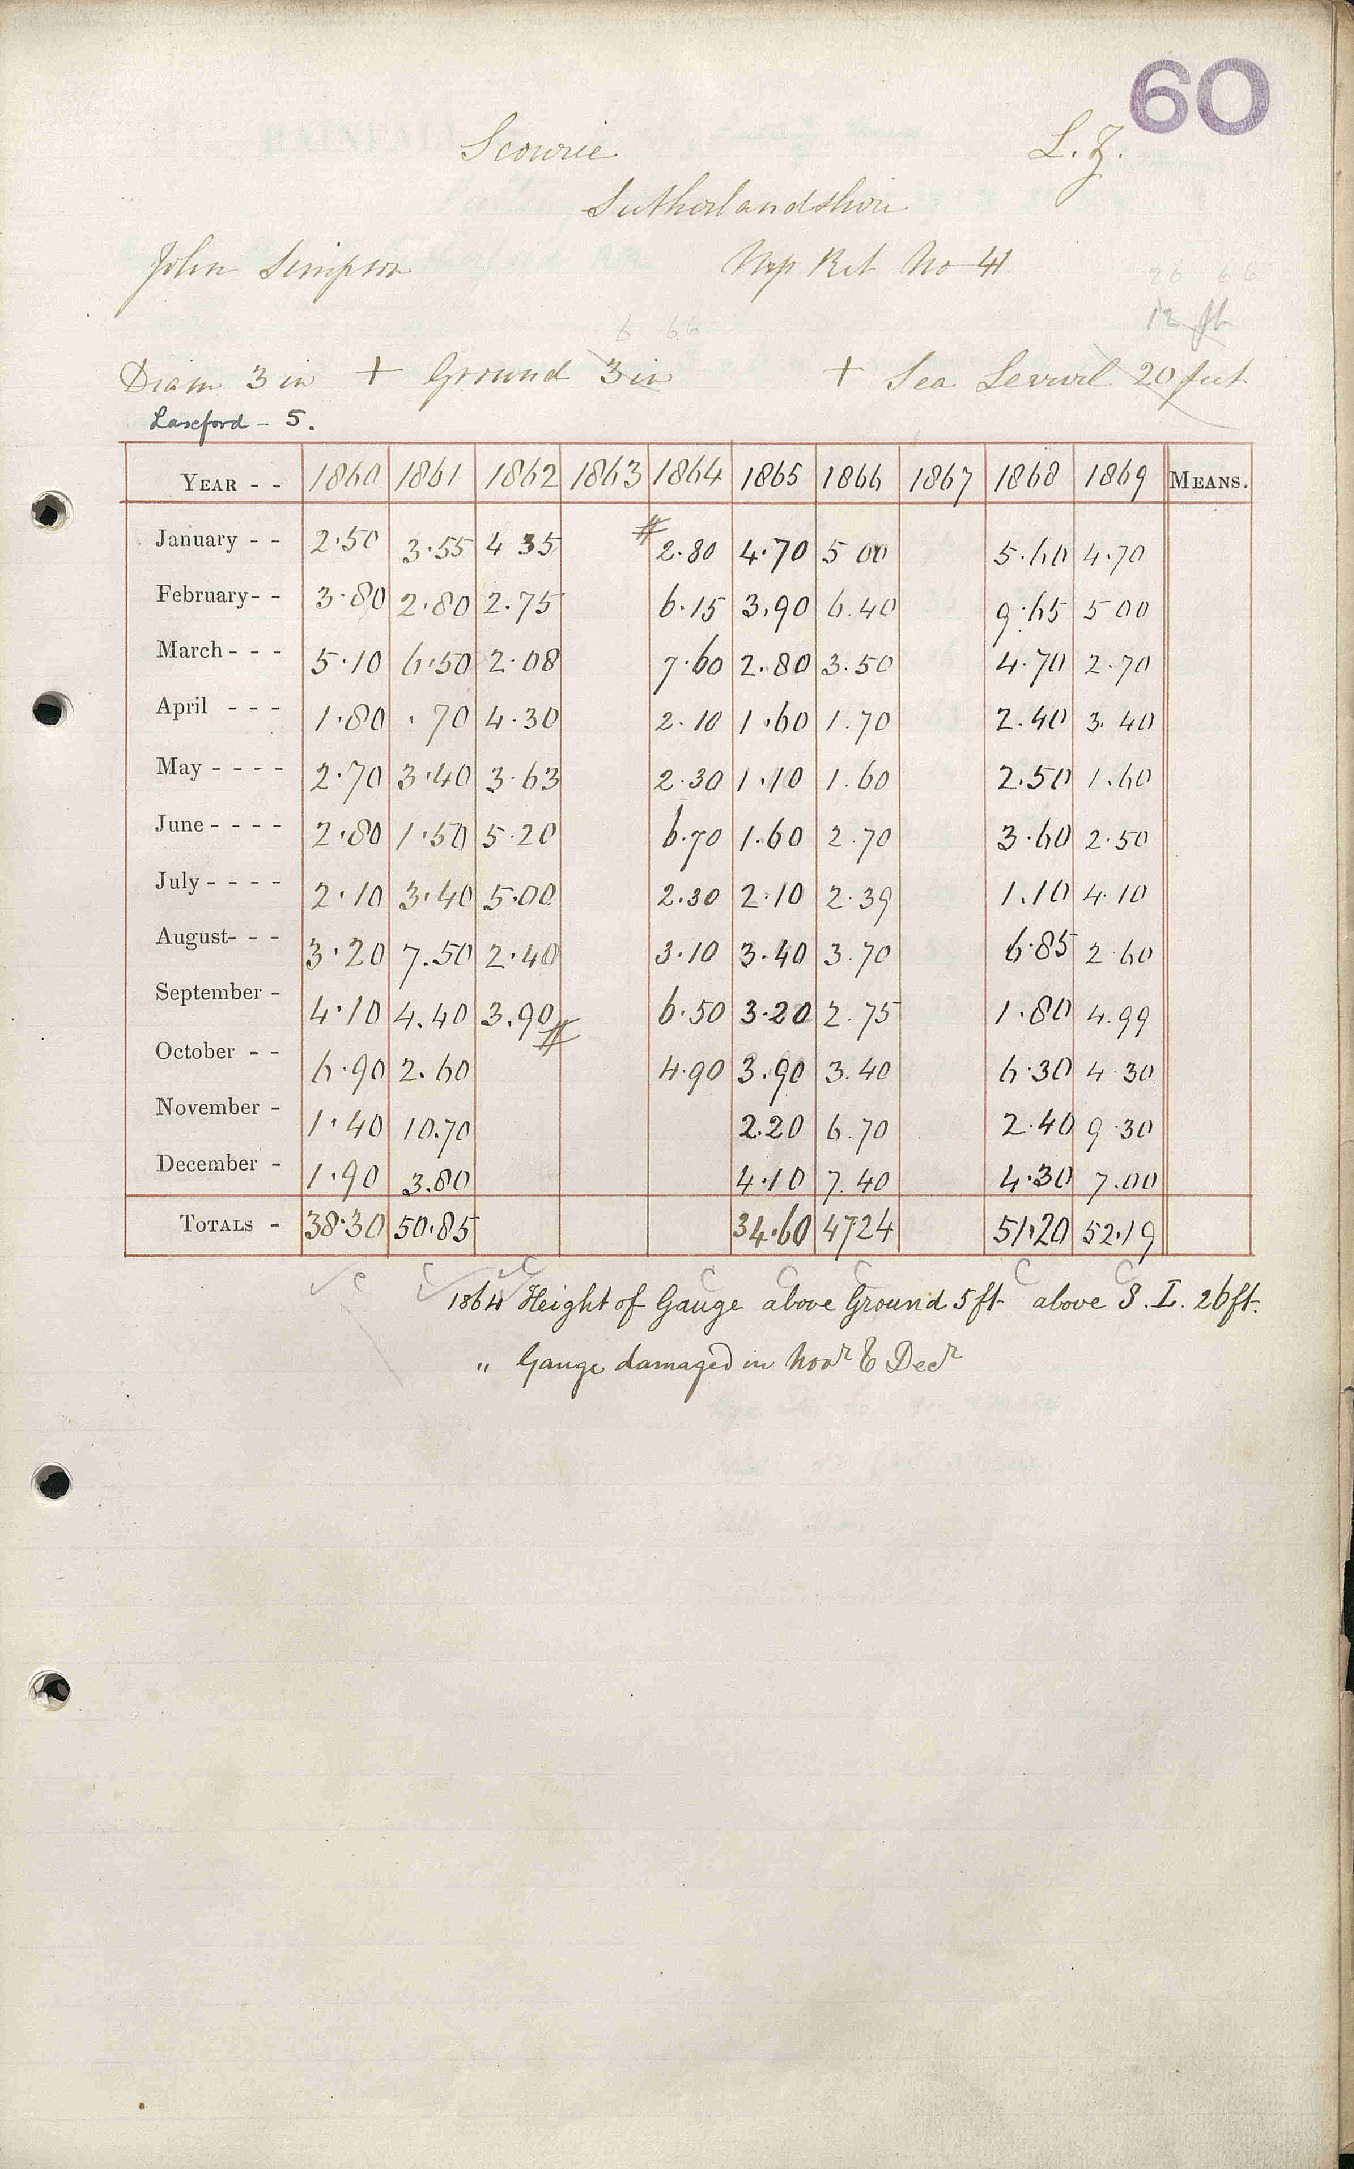 60
Scourie L. Z.
Sutherlandshire
John Simpson Mp Ret No 41
12 ft
6 66
Diam 3 in + Ground 3 in + Sea Level 20 feet
Laxford - 5.
YEAR - - 1860 1861 1862 1863 1864 1865 1866 1867 1868 1869 MEANS.
January - - 2.50 3.55 4 35 # 2.80 4.70 5 00 5.60 4.70
February - - 3.80 2.80 2.75 6.15 3.90 6.40 9.65 5 00
March - - - 5.10 6.50 2.08 7.60 2.80 3.50 4.70 2.70
April - - - 1.80 .70 4.30 2.10 1.60 1.70 2.40 3.40
May - - - - 2.70 3.40 3.63 2.30 1.10 1.60 2.50 1.60
June - - - - 2.80 1.50 5.20 6.70 1.60 2.70 3.60 2.50
July - - - - 2.10 3.40 5.00 2.30 2.10 2.39 1.10 4.10
August - - - 3.20 7.50 2.40 3.10 3.40 3.70 6.85 2.60
September - 4.10 4.40 3.90 # 6.50 3.20 2.75 1.80 4.99
October - - 6.90 2.60 4.90 3.90 3.40 6.30 4 30
November - 1.40 10.70 2.20 6.70 2.40 9.30
December - 1.90 3.80 4.10 7.40 4.30 7.00
TOTALS - 38.30 50.85 34.60 4724 51.20 52.19
1864 Height of Gauge above Ground 5 ft above S. L. 26 ft.
" Gauge damaged in Novr & Decr